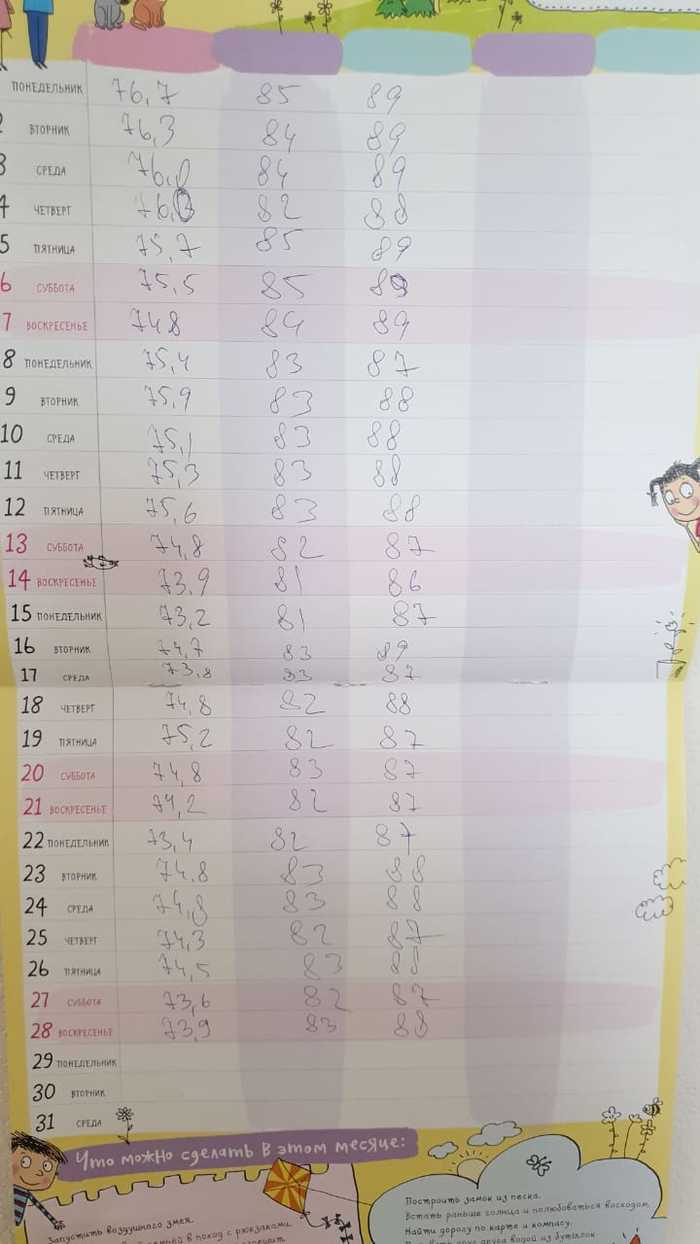 ПОНЕДЕЛЬНИК 76,7 85 89
2 ВТОРНИК 76,3 84 89
3 СРЕДА 76,0 84 89
4 ЧЕТВЕРГ 76,0 82 88
5 ПЯТНИЦА 75,7 85 89
6 СУББОТА 75,5 85 89
7 ВОСКРЕСЕНЬЕ 74,8 84 89
8 ПОНЕДЕЛЬНИК 75,4 83 87
9 ВТОРНИК 75,9 83 88
10 СРЕДА 75,1 83 88
11 ЧЕТВЕРГ 75,3 83 88
12 ПЯТНИЦА 75,6 83 88
13 СУББОТА 74,8 82 87
14 ВОСКРЕСЕНЬЕ 73,9 81 86
15 ПОНЕДЕЛЬНИК 73,2 81 87
16 ВТОРНИК 74,7 83 89
17 СРЕДА 73,8 83 87
18 ЧЕТВЕРГ 74,8 82 88
19 ПЯТНИЦА 75,2 82 87
20 СУББОТА 74,8 83 87
21 ВОСКРЕСЕНЬЕ 74,2 82 87
22 ПОНЕДЕЛЬНИК 73,4 82 87
23 ВТОРНИК 74.8 83 88
24 СРЕДА 74,8 83 88
25 ЧЕТВЕРГ 74,3 82 87
26 ПЯТНИЦА 74,5 83 88
27 СУББОТА 73,6 82 87
28 ВОСКРЕСЕНЬЕ 73,9 83 88
29 ПОНЕДЕЛЬНИК
30 ВТОРНИК
31 СРЕДА
Что можно сделать в этом месяце:
Запустить воздушного змея.
в поход с рюкзаками.
Построить замок из песка.
Встать раньше солнца и полюбоваться восходом.
Найти дорогу по карте и компасу.
друг друга водой из бутылок